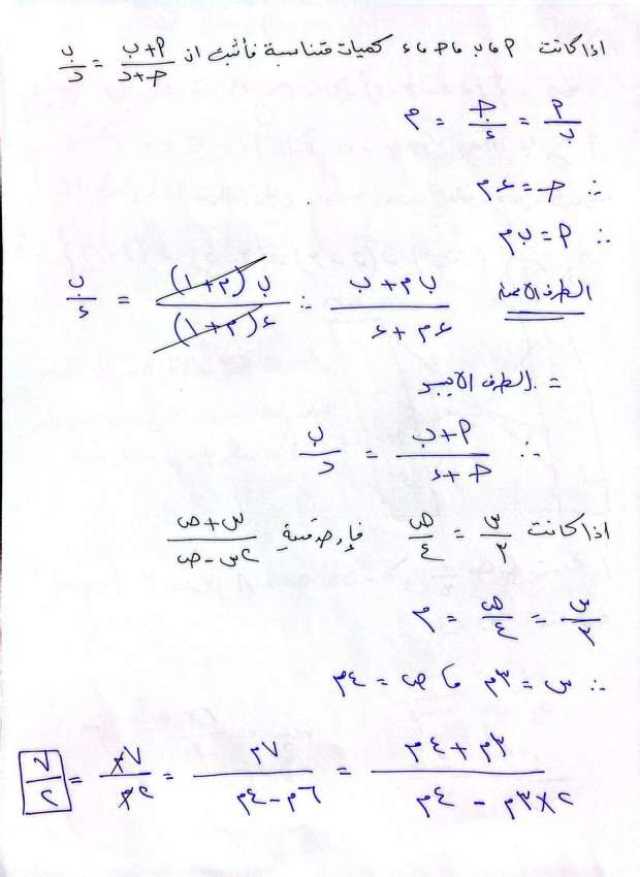 اذا كانت أ ، ب ، ج ، ء كميات متناسبة فأثبت ان (أ+ب)/(ج+د) = ب/د
أ/ب = ج/ء = م
∴ ج = ءم
∴ أ = بم
الطرف الايمن (بم+ب)/(ءم+ء) = ب(م+١)/ء(م+١) = ب/ء
= الطرف الايسر
∴ (أ+ب)/(ج+ء) = ب/د
اذا كانت س/٣ = ص/٤ فإوجد قيمة (س+ص)/(٢س-ص)
س/٣ = ص/٤ = م
∴ س = ٣م ، ص = ٤م
(٣م+٤م)/(٢×٣م - ٤م) = ٧م/(٦م-٤م) = ٧م/٢م = ٧/٢